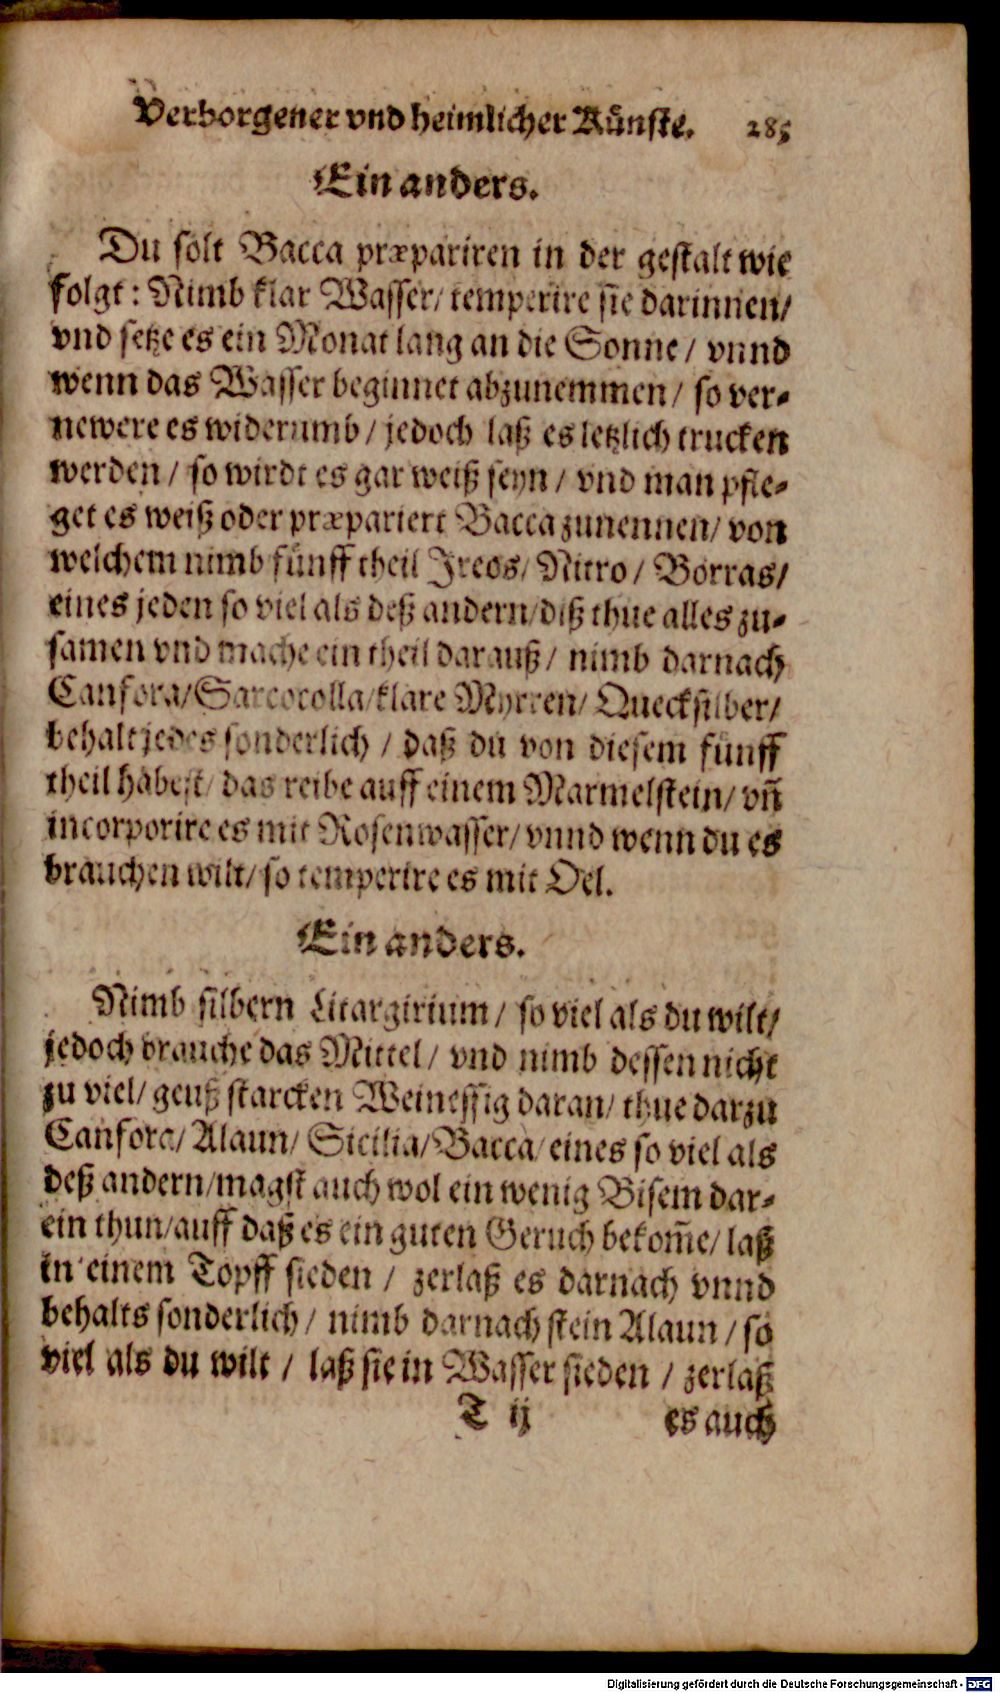 Verborgener vnd heimlicher Künste. 285
Ein anders.
Du solt Bacca præpariren in der gestalt wie
folgt: Nimb klar Wasser/ temperire sie darinnen/
vnd setze es ein Monat lang an die Sonne / vnnd
wenn das Wasser beginnet abzunemmen / so ver-
newere es widerumb / jedoch laß es letzlich trucken
werden / so wirdt es gar weiß seyn / vnd man pfle-
get es weiß oder præpariert Bacca zunennen/ von
welchem nimb fünff theil Jreos/ Nitro / Borras/
eines jeden so viel als deß andern/ diß thue alles zu-
samen vnd mache ein theil darauß / nimb darnach
Canfora/ Sarcocolla/ klare Myrren/ Quecksilber/
behalt jedes sonderlich / daß du von diesem fünff
theil habest/ das reibe auff einem Marmelstein/ vñ
incorporire es mit Rosenwasser/ vnnd wenn du es
brauchen wilt/ so temperire es mit Oel.
Ein anders.
Nimb silbern Litargirium / so viel als du wilt/
jedoch brauche das Mittel / vnd nimb dessen nicht
zu viel/ geuß starcken Weinessig daran/ thue darzu
Canfora/ Alaun/ Sicilia/ Bacca/ eines so viel als
deß andern/ magst auch wol ein wenig Bisem dar-
ein thun/ auff daß es ein guten Geruch bekom̃e/ laß
in einem Topff sieden / zerlaß es darnach vnnd
behalts sonderlich / nimb darnach stein Alaun / so
viel als du wilt / laß sie in Wasser sieden / zerlaß
T ij es auch
Digitalisierung gefördert durch die Deutsche Forschungsgemeinschaft - DFG